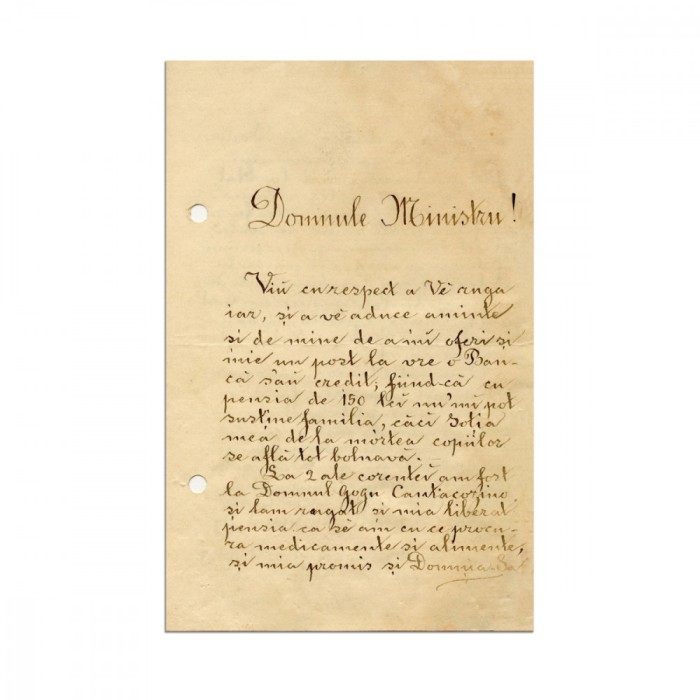 Domnule Ministru!
Viŭ cu respect a Vĕ ruga
iar, și a vĕ aduce aminte
și de mine de a'mĭ oferi și
mie un post la vre o Ban-
că s'aŭ credit, fiind-că cu
pensia de 150 lei nu'mĭ pot
susține familia, căci soția
mea de la mórtea copiilor
se află tot bolnavă. —
La 2 ale corentei am fost
la Domnul Gogu Cantacozino
și lam rugat și mia liberat
pensia ca sĕ am cu ce procu-
ra medicamente și alimente,
și mia promis și Domnia-Sa